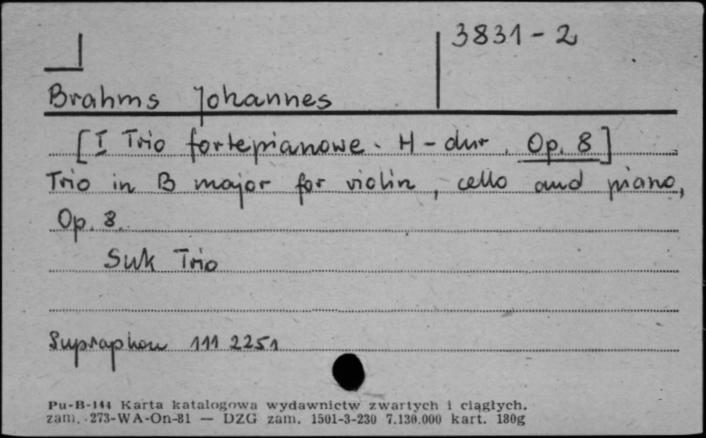 3831-2
Brahms Johannes
[I Trio fortepianowe. H-dur. Op. 8]
Trio in B major for violin, cello and piano,
Op. 8.
Suk Trio
Supraphon 111 2251
Pu-B-144 Karta katalogowa wydawnictw zwartych i ciągłych.
zam. 273-WA-On-81 — DZG zam. 1501-3-230 7.130.000 kart. 180g